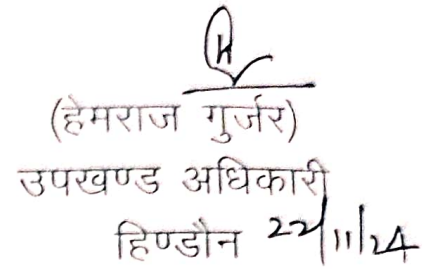 (हेमराज गुर्जर)
उपखण्ड अधिकारी
हिण्डौन 22/11/24